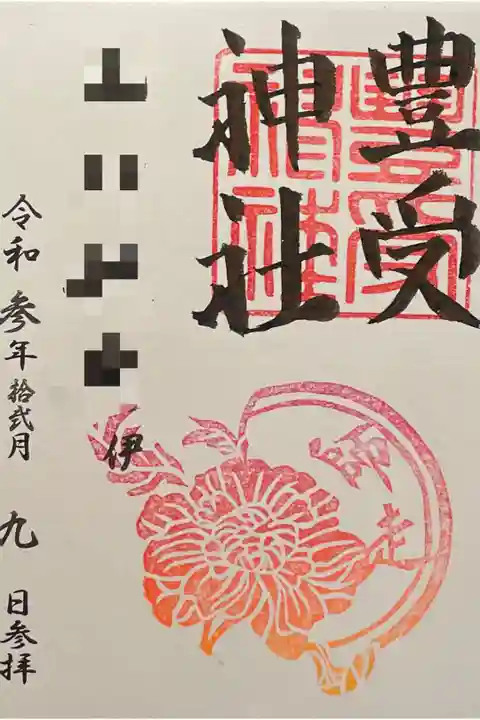 豊受
神社
豊受
神社
師走
伊
令和参年拾弐月九日参拝